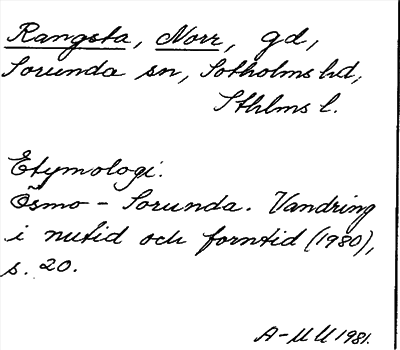 Rangsta, Norr, gd,
Sorunda sn, Sotholms hd,
Sthlms l.
Etymologi.
Ösmo - Sorunda. Vandring
i nutid och forntid (1980),
s. 20.
A-MU 1981.